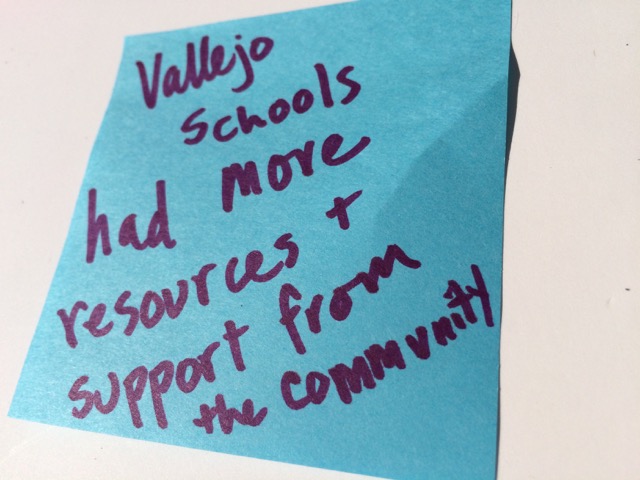 Vallejo
Schools
had more
resources +
support from
the community